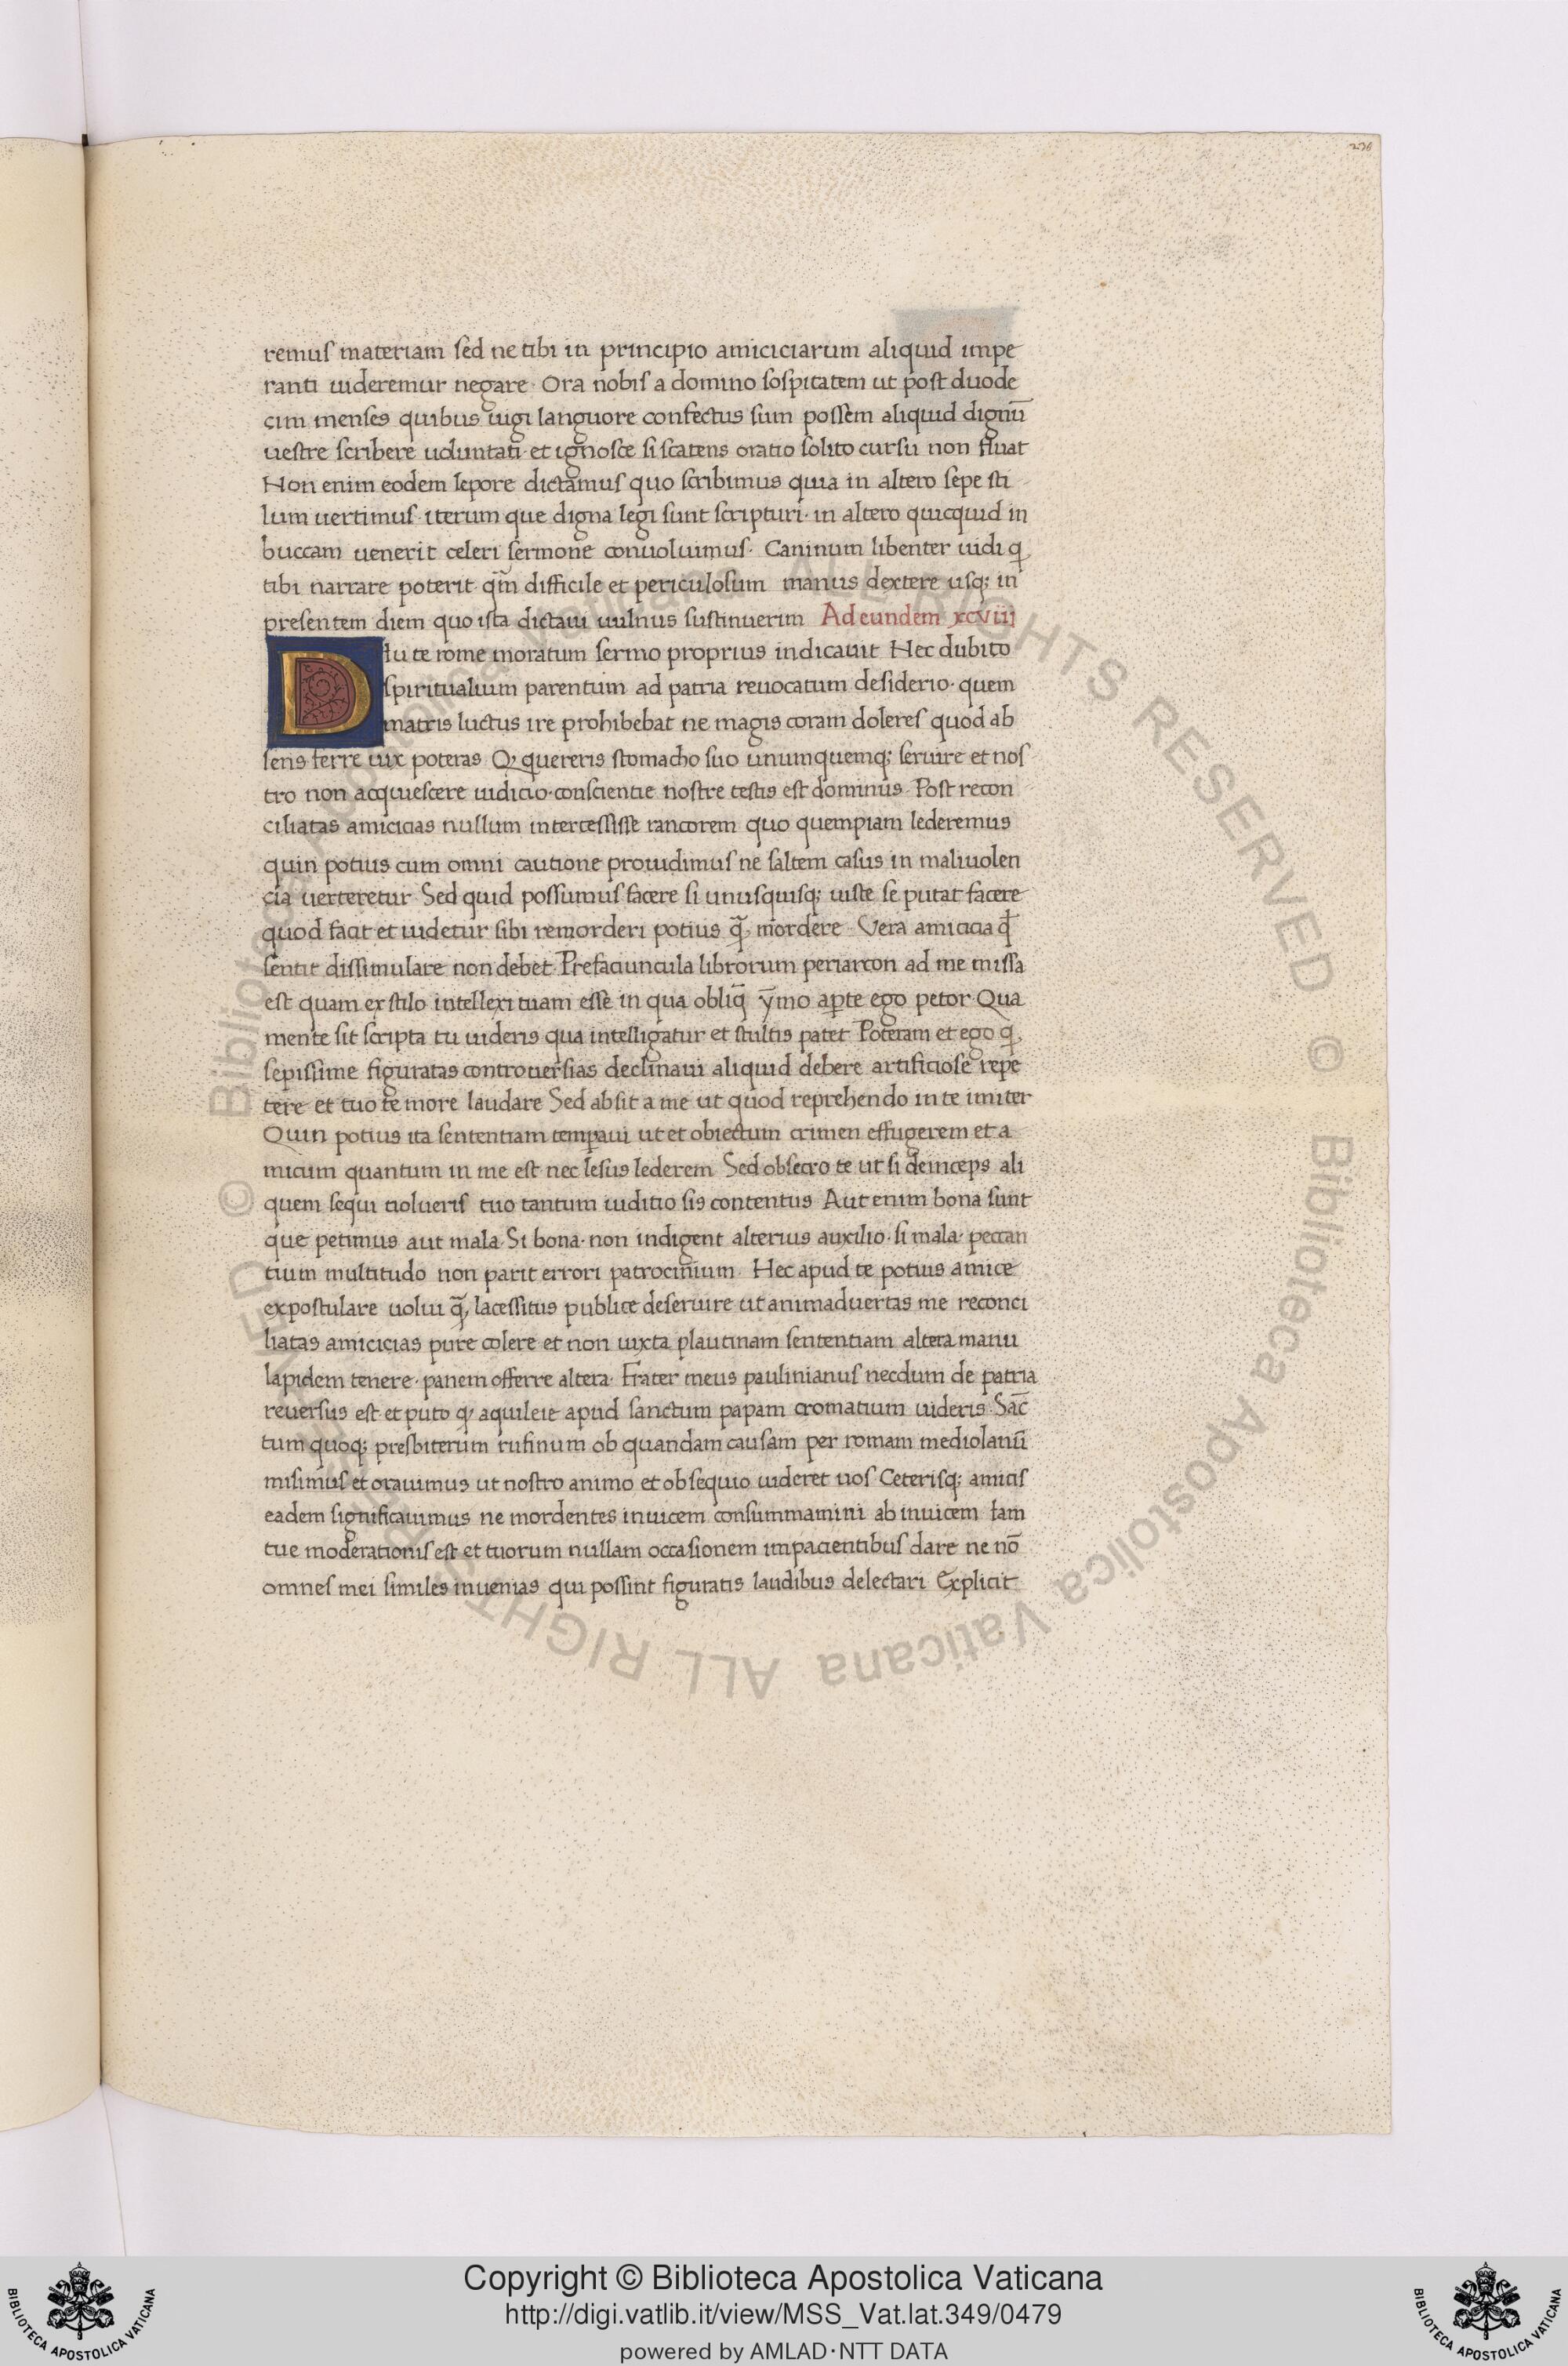 236
remus materiam sed ne tibi in principio amiciciarum aliquid impe
ranti uideremur negare· Ora nobis a domino sospitatem ut post duode
cim menses quibus iugi languore confectus sum possem aliquid dignū
uestre scribere uoluntati· et ignosce si scatens oratio solito cursu non fluat
Non enim eodem lepore dictamus quo scribimus quia in altero sepe sti
lum uertimus· iterum que digna legi sunt scripturi· in altero quicquid in
buccam uenerit celeri sermone conuoluimus· Caninum libenter uidi q
tibi narrare poterit qm̄ difficile et periculosum manus dextere usq; in
presentem diem quo ista dictaui uulnus sustinuerim Ad eundem xcviiij
DIu te rome moratum sermo proprius indicauit Nec dubito
spiritualium parentum ad patria reuocatum desiderio· quem
matris luctus ire prohibebat ne magis coram doleres quod ab
sens ferre uix poteras Q; quereris stomacho suo unumquemq; seruire et nos
tro non acquiescere iudicio· conscientie nostre testis est dominus· Post recon
ciliatas amicicias nullum intercessisse rancorem quo quempiam lederemus
quin potius cum omni cautione prouidimus ne saltem casus in maliuolen
cia uerteretur Sed quid possumus facere si unusquisq; iuste se putat facere
quod facit et uidetur sibi remorderi potius q̄; mordere· Vera amicicia qđ
sentit dissimulare non debet· Prefaciuncula librorum periarcon ad me missa
est quam ex stilo intellexi tuam esse in qua obliq̄ ȳmo aperte ego petor· Qua
mente sit scripta tu uideris qua intelligatur et stultis patet Poteram et ego q
sepissime figuratas controuersias declinaui aliquid debere artificiose repe
tere et tuo te more laudare Sed absit a me ut quod reprehendo in te imiter
Quin potius ita sententiam temperaui ut et obiectum crimen effugerem et a
micum quantum in me est nec lesus lederem Sed obsecro te ut si deinceps ali
quem sequi uolueris tuo tantum iuditio sis contentus Aut enim bona sunt
que petimus aut mala· Si bona· non indigent alterius auxilio· si mala· peccan
tium multitudo non parit errori patrocinium· Hec apud te potius amice
expostulare uolui q̄; lacessitus publice deseruire ut animaduertas me reconci
liatas amicicias pure colere et non iuxta plautinam sententiam altera manu
lapidem tenere· panem offerre altera· Frater meus paulinianus necdum de patria
reuersus est et puto q; aquileie apud sanctum papam cromatium uideris· Sāc
tum quoq; presbiterum rufinum ob quandam causam per romam mediolanū
misimus et orauimus ut nostro animo et obsequio uideret uos Ceterisq; amicis
eadem significauimus ne mordentes inuicem consummamini ab inuicem Iam
tue moderationis est et tuorum nullam occasionem impacientibus dare ne nō
omnes mei similes inuenias qui possint figuratis laudibus delectari Explicit
© Biblioteca Apostolica Vaticana ALL RIGHTS RESERVED © Biblioteca Apostolica Vaticana ALL RIGHTS RESERVED
Copyright © Biblioteca Apostolica Vaticana
http://digi.vatlib.it/view/MSS_Vat.lat.349/0479
powered by AMLAD·NTT DATA
BIBLIOTECA APOSTOLICA VATICANA
BIBLIOTECA APOSTOLICA VATICANA